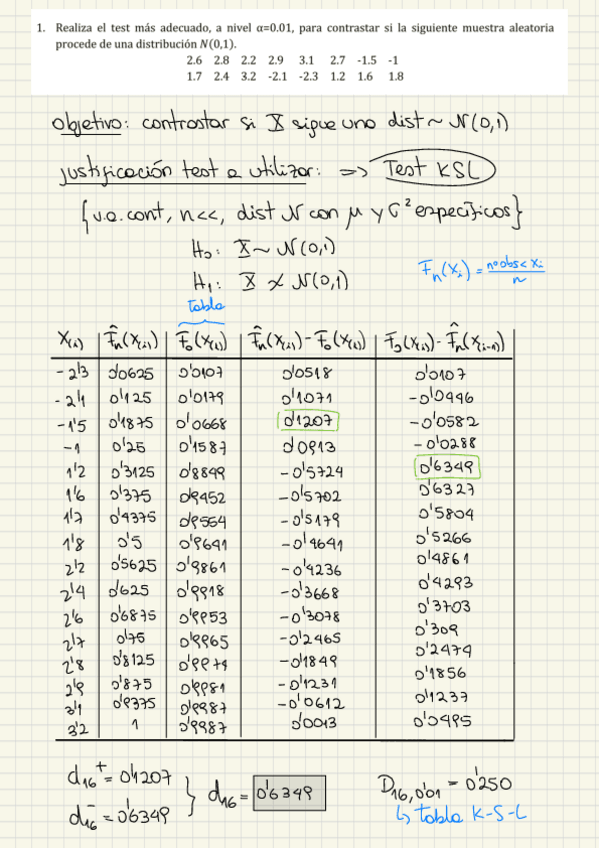 1. Realiza el test más adecuado, a nivel α=0.01, para contrastar si la siguiente muestra aleatoria
procede de una distribución N(0,1).
2.6 2.8 2.2 2.9 3.1 2.7 -1.5 -1
1.7 2.4 3.2 -2.1 -2.3 1.2 1.6 1.8
Objetivo: contrastar si X sigue una dist ~ N(0,1)
Justificación test a utilizar: => Test KSL
{v.a. cont, n<<, dist N con μ y σ² específicos}
H₀: X ~ N(0,1)
F̂n(xi) = nº obs < xi / n
H₁: X ≁ N(0,1)
tabla
X(i) F̂n(X(i)) F₀(X(i)) F̂n(X(i)) - F₀(X(i)) F₀(X(i)) - F̂n(X(i-1))
-2'3 0'0625 0'0107 0'0518 0'0107
-2'1 0'125 0'0179 0'1071 -0'0446
-1'5 0'1875 0'0668 0'1207 -0'0582
-1 0'25 0'1587 0'0913 -0'0288
1'2 0'3125 0'8849 -0'5724 0'6349
1'6 0'375 0'9452 -0'5702 0'6327
1'7 0'4375 0'9554 -0'5179 0'5804
1'8 0'5 0'9641 -0'4641 0'5266
2'2 0'5625 0'9861 -0'4236 0'4861
2'4 0'625 0'9918 -0'3668 0'4293
2'6 0'6875 0'9953 -0'3078 0'3703
2'7 0'75 0'9965 -0'2465 0'309
2'8 0'8125 0'9974 -0'1849 0'2474
2'9 0'875 0'9981 -0'1231 0'1856
3'1 0'9375 0'9987 -0'0612 0'1237
3'2 1 0'9987 0'0013 0'0495
d₁₆⁺ = 0'1207
d₁₆⁻ = 0'6349
} d₁₆ = 0'6349
D₁₆,₀'₀₁ = 0'250
↳ tabla K-S-L